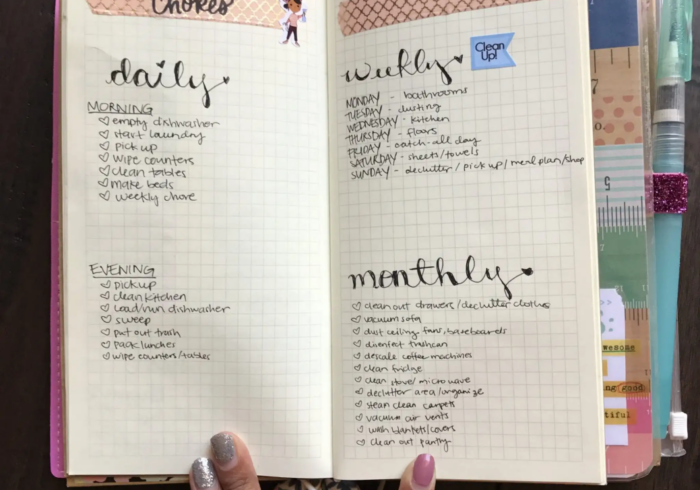 Chores
daily
MORNING
empty dishwasher
start laundry
pick up
wipe counters
clean tables
make beds
weekly chore
EVENING
pickup
clean kitchen
load/run dishwasher
sweep
put out trash
pack lunches
wipe counters/tables
weekly
Clean
Up!
MONDAY - bathrooms
TUESDAY - dusting
WEDNESDAY - kitchen
THURSDAY - floors
FRIDAY - catch-all day
SATURDAY - sheets/towels
SUNDAY - declutter/pick up/meal plan/shop
monthly
clean out drawers/declutter clothes
vacuum sofa
dust ceiling fans, baseboards
disinfect trashcan
descale coffee machines
clean fridge
clean stove/microwave
declutter area/organize
steam clean carpets
vacuum air vents
wash blankets/covers
clean out pantry
7
5
good